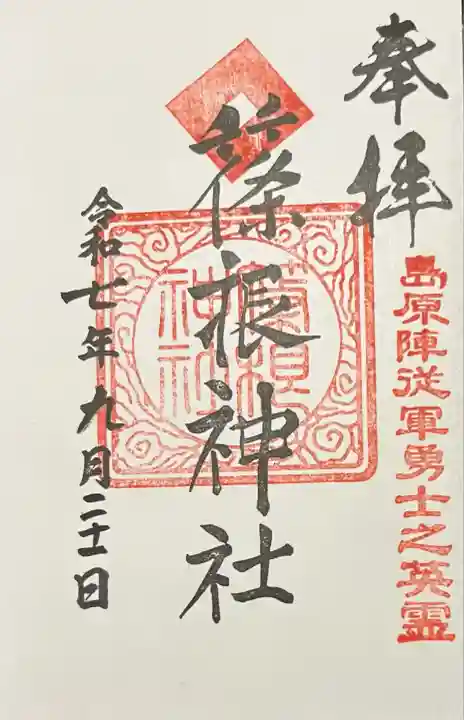 奉拝
島原陣従軍勇士之英霊
篠振神社
令和七年九月二十一日